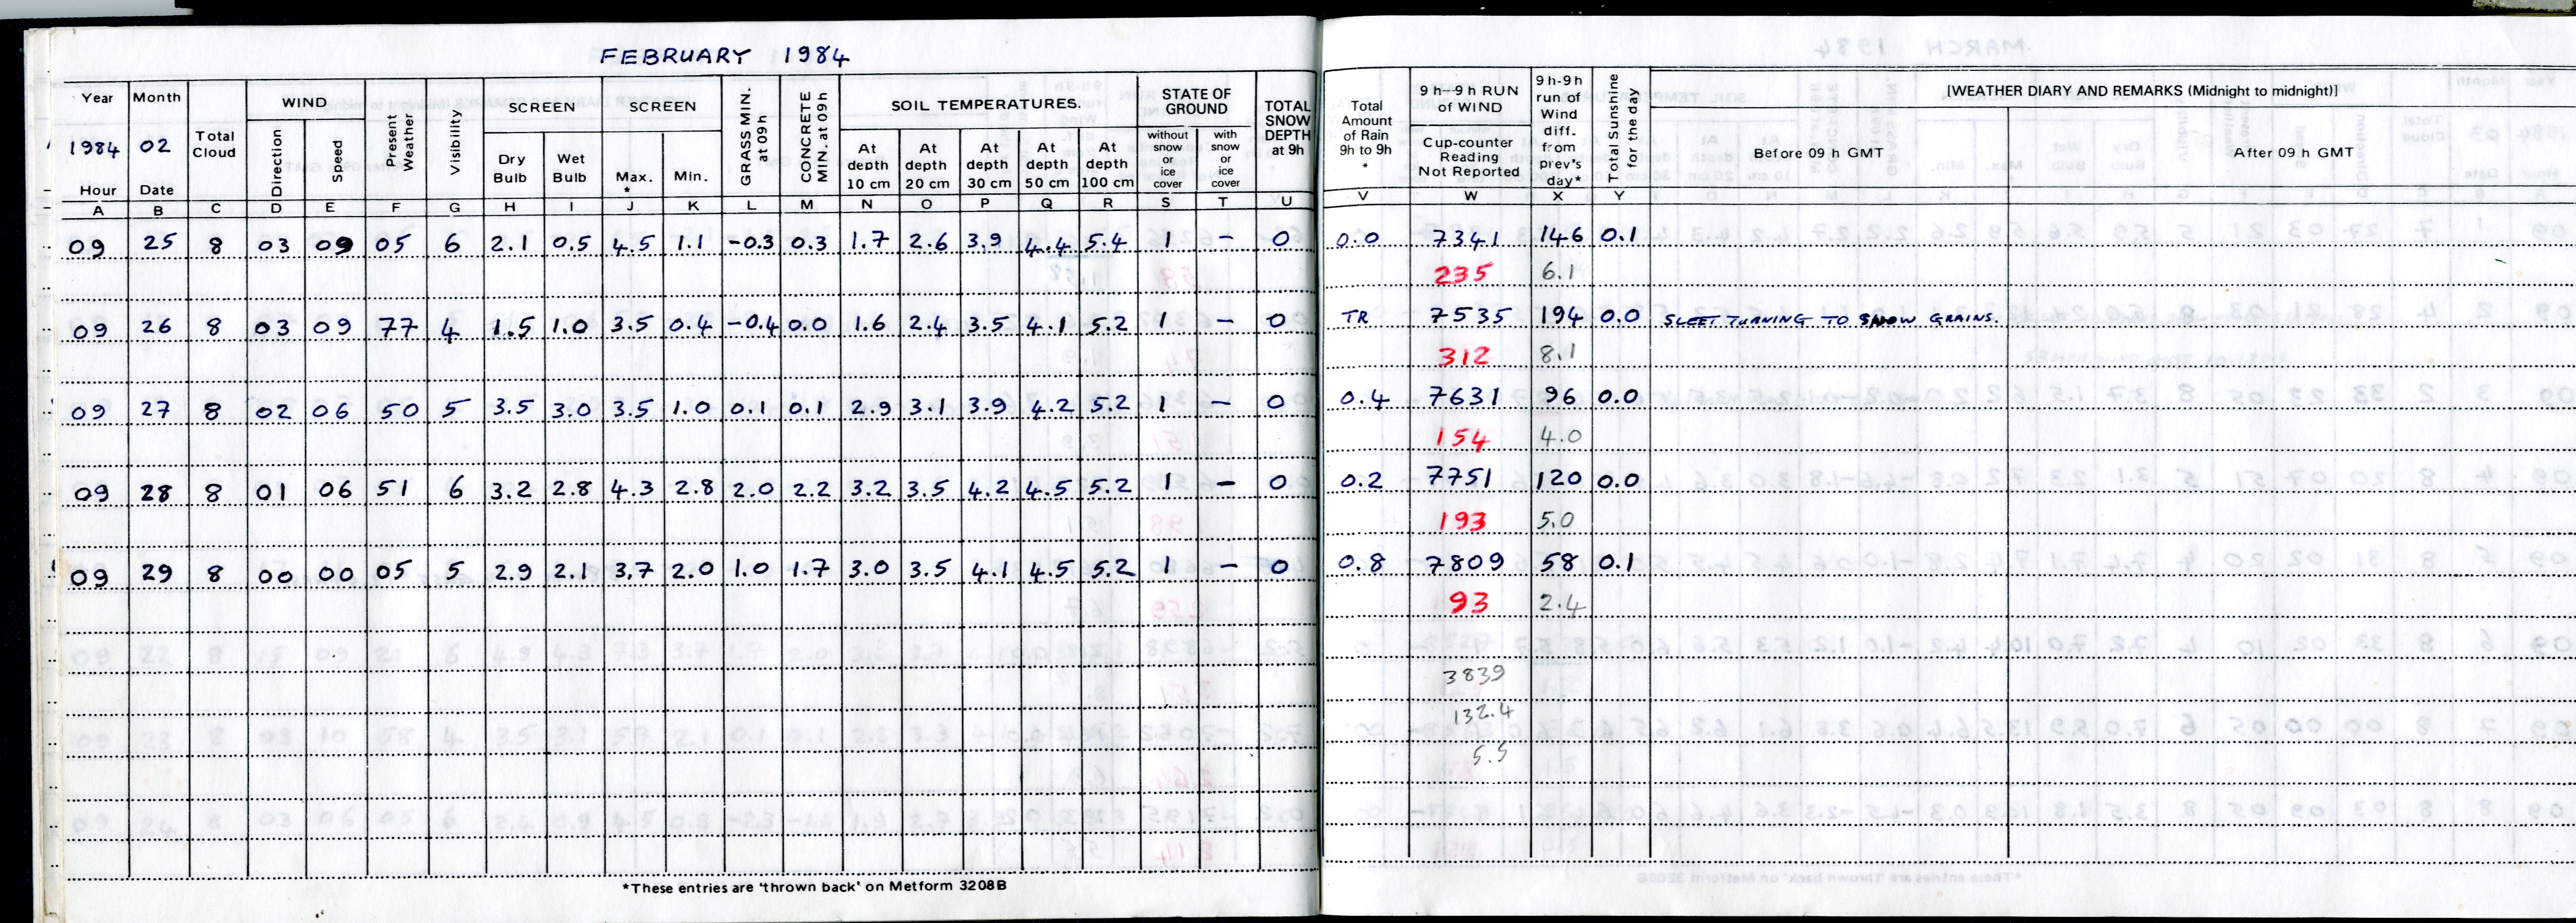 FEBRUARY 1984
Year Month Total Cloud WIND Present Weather Visibility SCREEN SCREEN GRASS MIN. at 09 h CONCRETE MIN. at 09h SOIL TEMPERATURES. STATE OF GROUND TOTAL SNOW DEPTH at 9h Total Amount of Rain 9h to 9h * 9 h-9 h RUN of WIND 9 h-9 h run of Wind diff. from prev's day* Total Sunshine for the day [WEATHER DIARY AND REMARKS (Midnight to midnight)]
1984 02 Direction Speed Dry Bulb Wet Bulb Max. * Min. At depth 10 cm At depth 20 cm At depth 30 cm At depth 50 cm At depth 100 cm without snow or ice cover with snow or ice cover Cup-counter Reading Not Reported Before 09 h GMT After 09 h GMT
Hour Date
A B C D E F G H I J K L M N O P Q R S T U V W X Y
09 25 8 03 09 05 6 2.1 0.5 4.5 1.1 -0.3 0.3 1.7 2.6 3.9 4.4 5.4 1 - 0 0.0 7341 146 0.1
235 6.1
09 26 8 03 09 77 4 1.5 1.0 3.5 0.4 -0.4 0.0 1.6 2.4 3.5 4.1 5.2 1 - 0 TR 7535 194 0.0 SLEET TURNING TO SNOW GRAINS.
312 8.1
09 27 8 02 06 50 5 3.5 3.0 3.5 1.0 0.1 0.1 2.9 3.1 3.9 4.2 5.2 1 - 0 0.4 7631 96 0.0
154 4.0
09 28 8 01 06 51 6 3.2 2.8 4.3 2.8 2.0 2.2 3.2 3.5 4.2 4.5 5.2 1 - 0 0.2 7751 120 0.0
193 5.0
09 29 8 00 00 05 5 2.9 2.1 3.7 2.0 1.0 1.7 3.0 3.5 4.1 4.5 5.2 1 - 0 0.8 7809 58 0.1
93 2.4
3839
132.4
5.5
*These entries are 'thrown back' on Metform 3208B